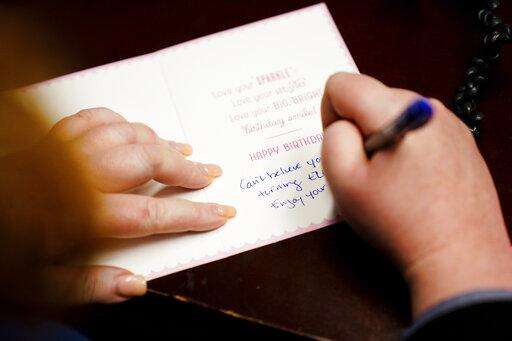 Love your "SPARKLE"
Love your
Love your BIG, BRIGHT
Birthday smile!
HAPPY BIRTHDAY
Can't believe yo
turning
Enjoy your